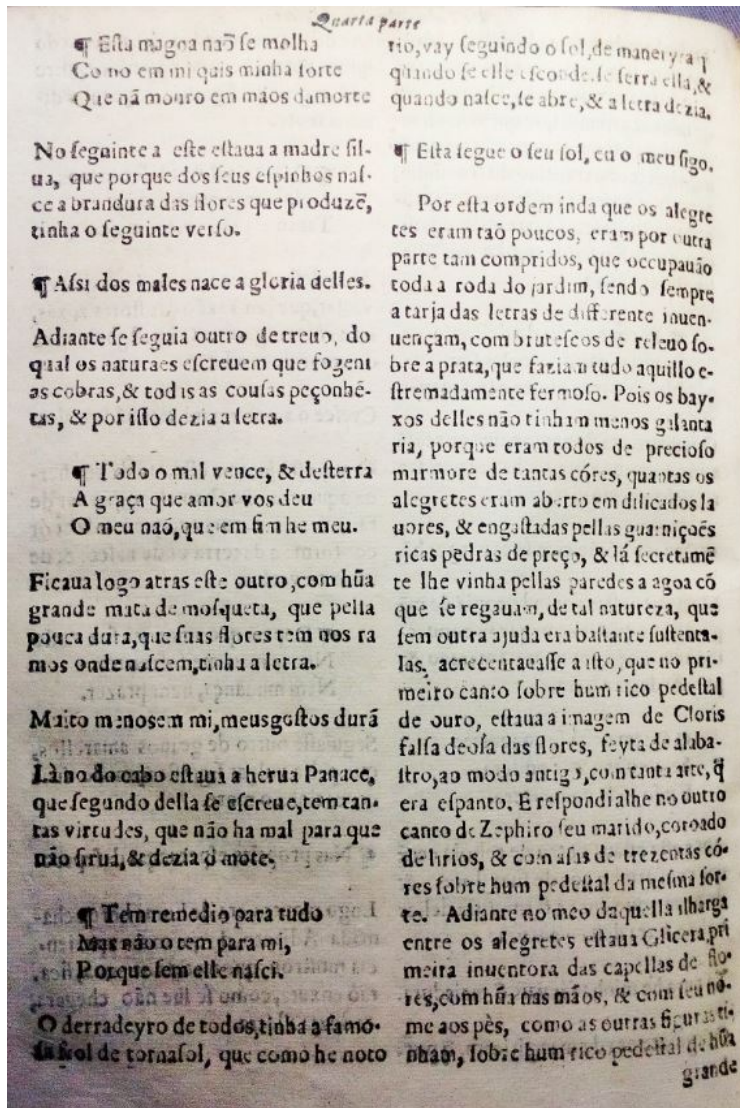 Quarta parte
¶ Esta magoa naõ se molha
Co no em mi quis minha sorte
Que nã mouro em maos damorte
No seguinte a este estaua a madre sil-
ua, que porque dos seus espinhos nas-
ce a brandura das flores que produzẽ,
tinha o seguinte verso.
¶ Assi dos males nace a gloria delles.
Adiante se seguia outro de treuo, do
qual os naturaes escreuem que fogem
as cobras, & todas as cousas peçonhẽ-
tas, & por isso dezia a letra.
¶ Todo o mal vence, & desterra
A graça que amor vos deu
O meu naõ, que em fim he meu.
Ficaua logo atras este outro, com hũa
grande mata de mosqueta, que pella
pouca dura, que suas flores tem nos ra
mos onde nascem, tinha a letra.
Muito menos em mi, meus gostos durã
Là no do cabo estaua a herua Panace,
que segundo della se escreue, tem tan-
tas virtudes, que não ha mal para que
não sirua, & dezia o mote.
¶ Tem remedio para tudo
Mas não o tem para mi,
Porque sem elle nasci.
O derradeyro de todos, tinha a famo-
sa sol de tornasol, que como he noto
rio, vay seguindo o sol, de maneyra q̃
quando se elle esconde, se serra ella, &
quando nasce, se abre, & a letra dezia.
¶ Esta segue o seu sol, eu o meu sigo.
Por esta ordem inda que os alegre
tes eram taõ poucos, eram por outra
parte tam compridos, que occupauão
toda a roda do jardim, sendo sempre
a tarja das letras de differente inuen-
uençam, com brutescos de releuo so-
bre a prata, que faziam tudo aquillo e-
stremadamente fermoso. Pois os bay-
xos delles não tinham menos galanta
ria, porque eram todos de precioso
marmore de tantas córes, quantas os
alegretes eram aberto em dilicados la
uores, & engastadas pellas guarniçoẽs
ricas pedras de preço, & lá secretamẽ
te lhe vinha pellas paredes a agoa cõ
que se regauam, de tal natureza, que
sem outra ajuda era bastante sustenta-
las, acrecentauasse a isto, que no pri-
meiro canto sobre hum rico pedestal
de ouro, estaua a imagem de Cloris
falsa deosa das flores, feyta de alaba-
stro, ao modo antigo, com tanta arte, q̃
era espanto. E respondialhe no outro
canto de Zephiro seu marido, coroado
de lirios, & com asas de trezentas có-
res sobre hum pedestal da mesma sor-
te. Adiante no meo daquella ilharga
entre os alegretes estaua Glicera, pri
meira inuentora das capellas de flo-
res, com hũa nas mãos, & com seu no-
me aos pès, como as outras figuras ti-
nham, sobre hum rico pedestal de hũa
grande